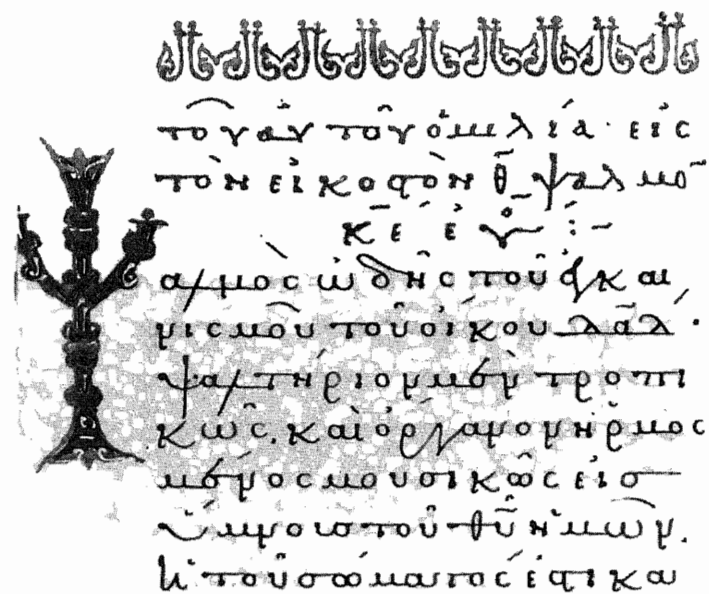 τοῦ αὐτοῦ ὁμιλία· εἰς
τὸν εἰκοστὸν θ̄ ψαλμο̄
κ̄ε̄ εὐ :–
αλμὸς ὠδῆς τοῦ ἐγκαι
νισμοῦ τοῦ οἴκου δᾱδ̄·
ψαλτήριον μὲν τροπι
κῶς, καὶ ὄργανον ἡρμοσ
μένον μουσικῶς εἰσ
ὕμνους τοῦ θ̄ῡ ἡμῶν,
ἡ τοῦ σώματος ἐστι κα